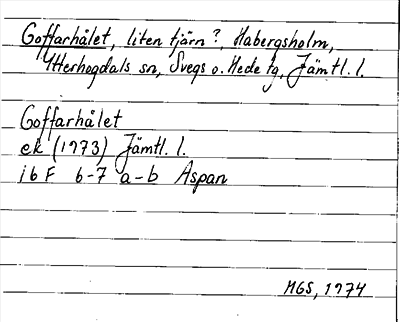 Goffarhålet, liten tjärn?, Habergsholm,
Ytterhogdals sn, Svegs o. Hede tg, Jämtl. l.
Goffarhålet
ek (1973) Jämtl. l.
16 F 6-7 a-b Aspan
MGS, 1974